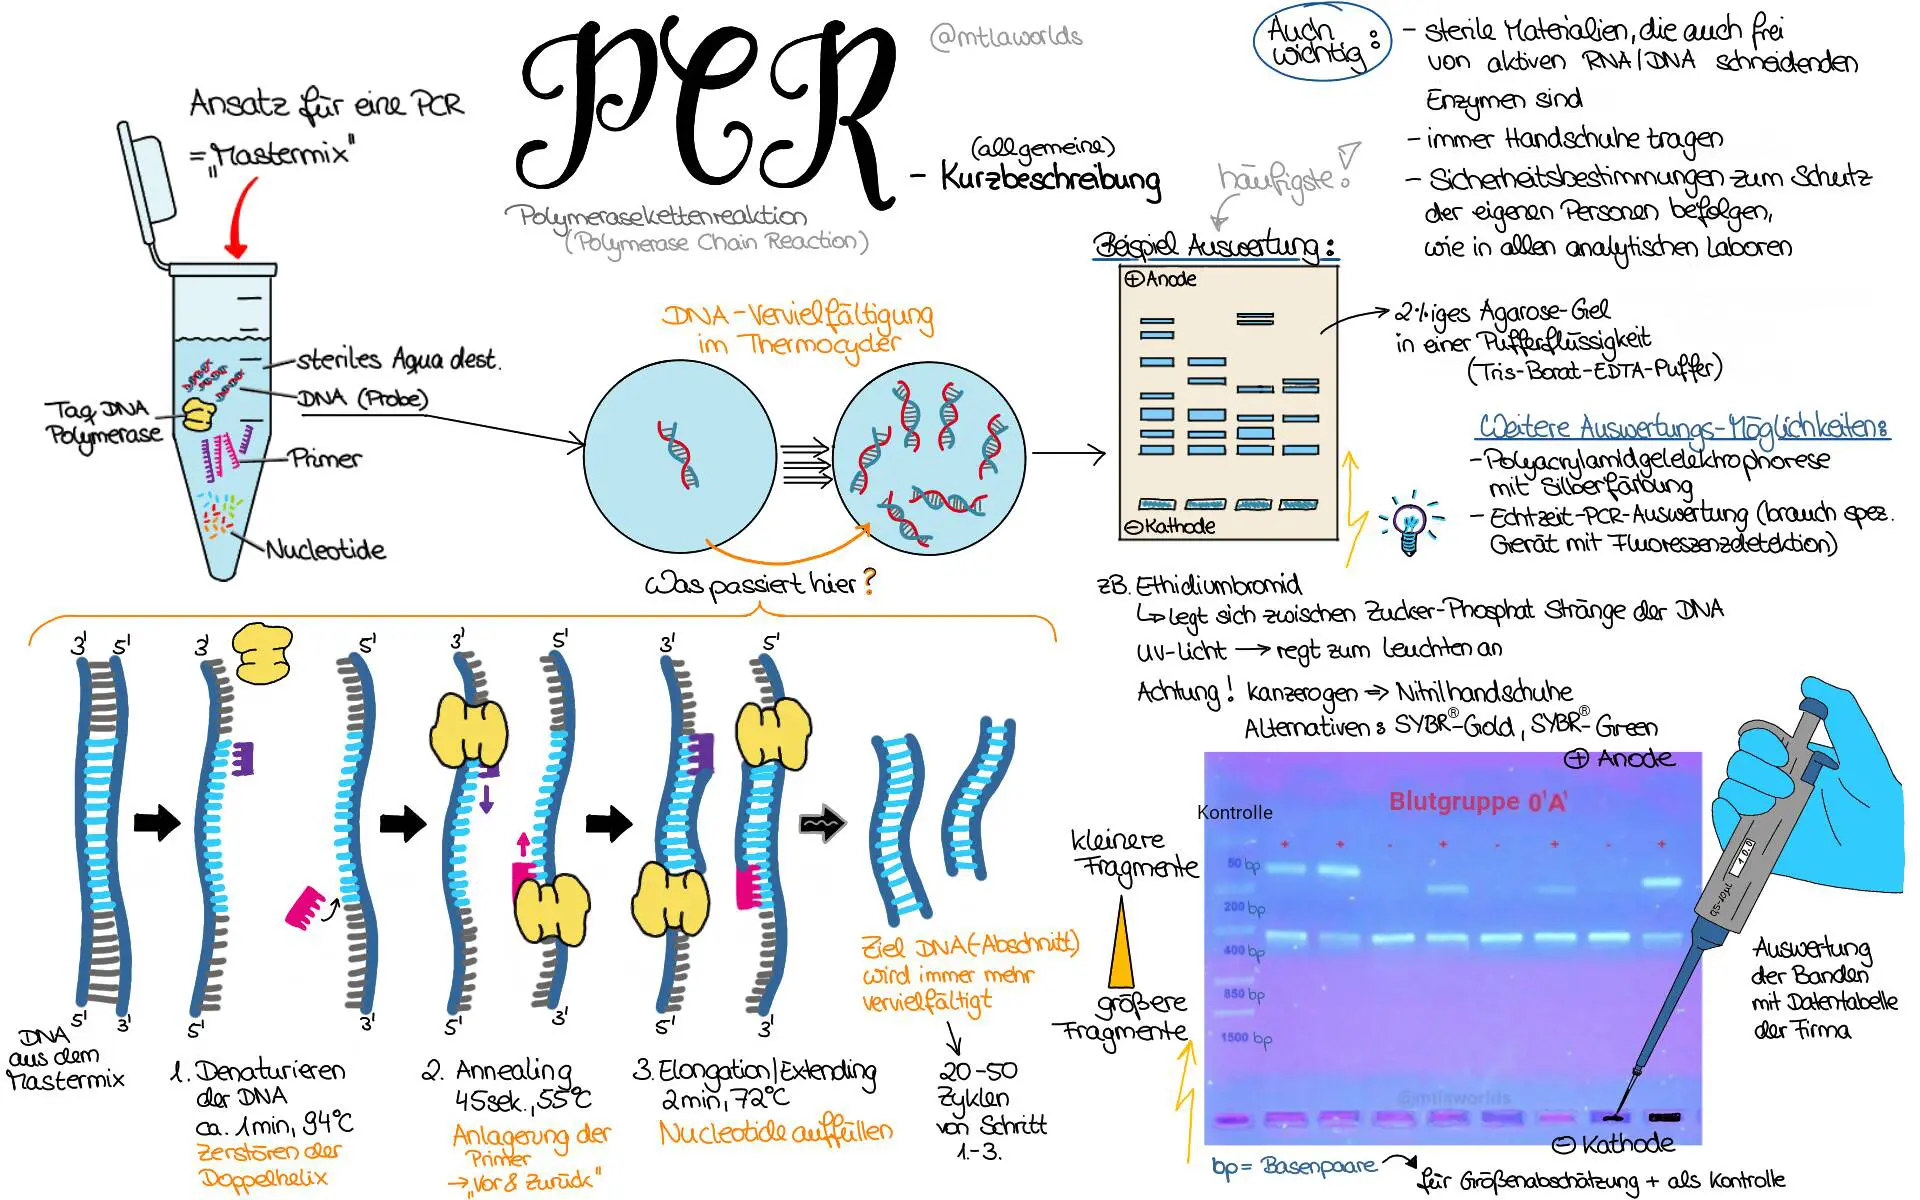 PCR
@mtlaworlds
(allgemeine)
- Kurzbeschreibung
Polymerasekettenreaktion
(Polymerase Chain Reaction)
Ansatz für eine PCR
= „Mastermix"
steriles Aqua dest.
DNA (Probe)
Taq DNA
Polymerase
Primer
Nucleotide
DNA-Vervielfältigung
im Thermocycler
Was passiert hier?
häufigste!
Beispiel Auswertung:
⊕ Anode
⊖ Kathode
Auch
wichtig:
- sterile Materialien, die auch frei
von aktiven RNA/DNA schneidenden
Enzymen sind
- immer Handschuhe tragen
- Sicherheitsbestimmungen zum Schutz
der eigenen Personen befolgen,
wie in allen analytischen Laboren
2%iges Agarose-Gel
in einer Pufferflüssigkeit
(Tris-Borat-EDTA-Puffer)
Weitere Auswertungs-Möglichkeiten:
- Polyacrylamidgelelektrophorese
mit Silberfärbung
- Echtzeit-PCR-Auswertung (brauch spez.
Gerät mit Fluoreszenzdetektion)
zB. Ethidiumbromid
↳ legt sich zwischen Zucker-Phosphat Stränge der DNA
UV-Licht → regt zum Leuchten an
Achtung! Kanzerogen ⇒ Nitrilhandschuhe
Alternativen: SYBR®-Gold, SYBR®-Green
3' 5'
3' 5'
3' 5'
3' 5'
5' 3'
5' 3'
5' 3'
5' 3'
DNA
aus dem
Mastermix
1. Denaturieren
der DNA
ca. 1min, 94°C
Zerstören der
Doppelhelix
2. Annealing
45sek., 55°C
Anlagerung der
Primer
→ „Vor & Zurück"
3. Elongation/Extending
2min, 72°C
Nucleotide auffüllen
Ziel DNA(-Abschnitt)
wird immer mehr
vervielfältigt
20-50
Zyklen
von Schritt
1.-3.
kleinere
Fragmente
größere
Fragmente
⊕ Anode
Kontrolle
Blutgruppe 0¹A¹
+ + - + - + - +
50 bp
200 bp
400 bp
850 bp
1500 bp
@mtlaworlds
⊖ Kathode
100
0,5-10µL
Auswertung
der Banden
mit Datentabelle
der Firma
bp = Basenpaare
für Größenabschätzung + als Kontrolle